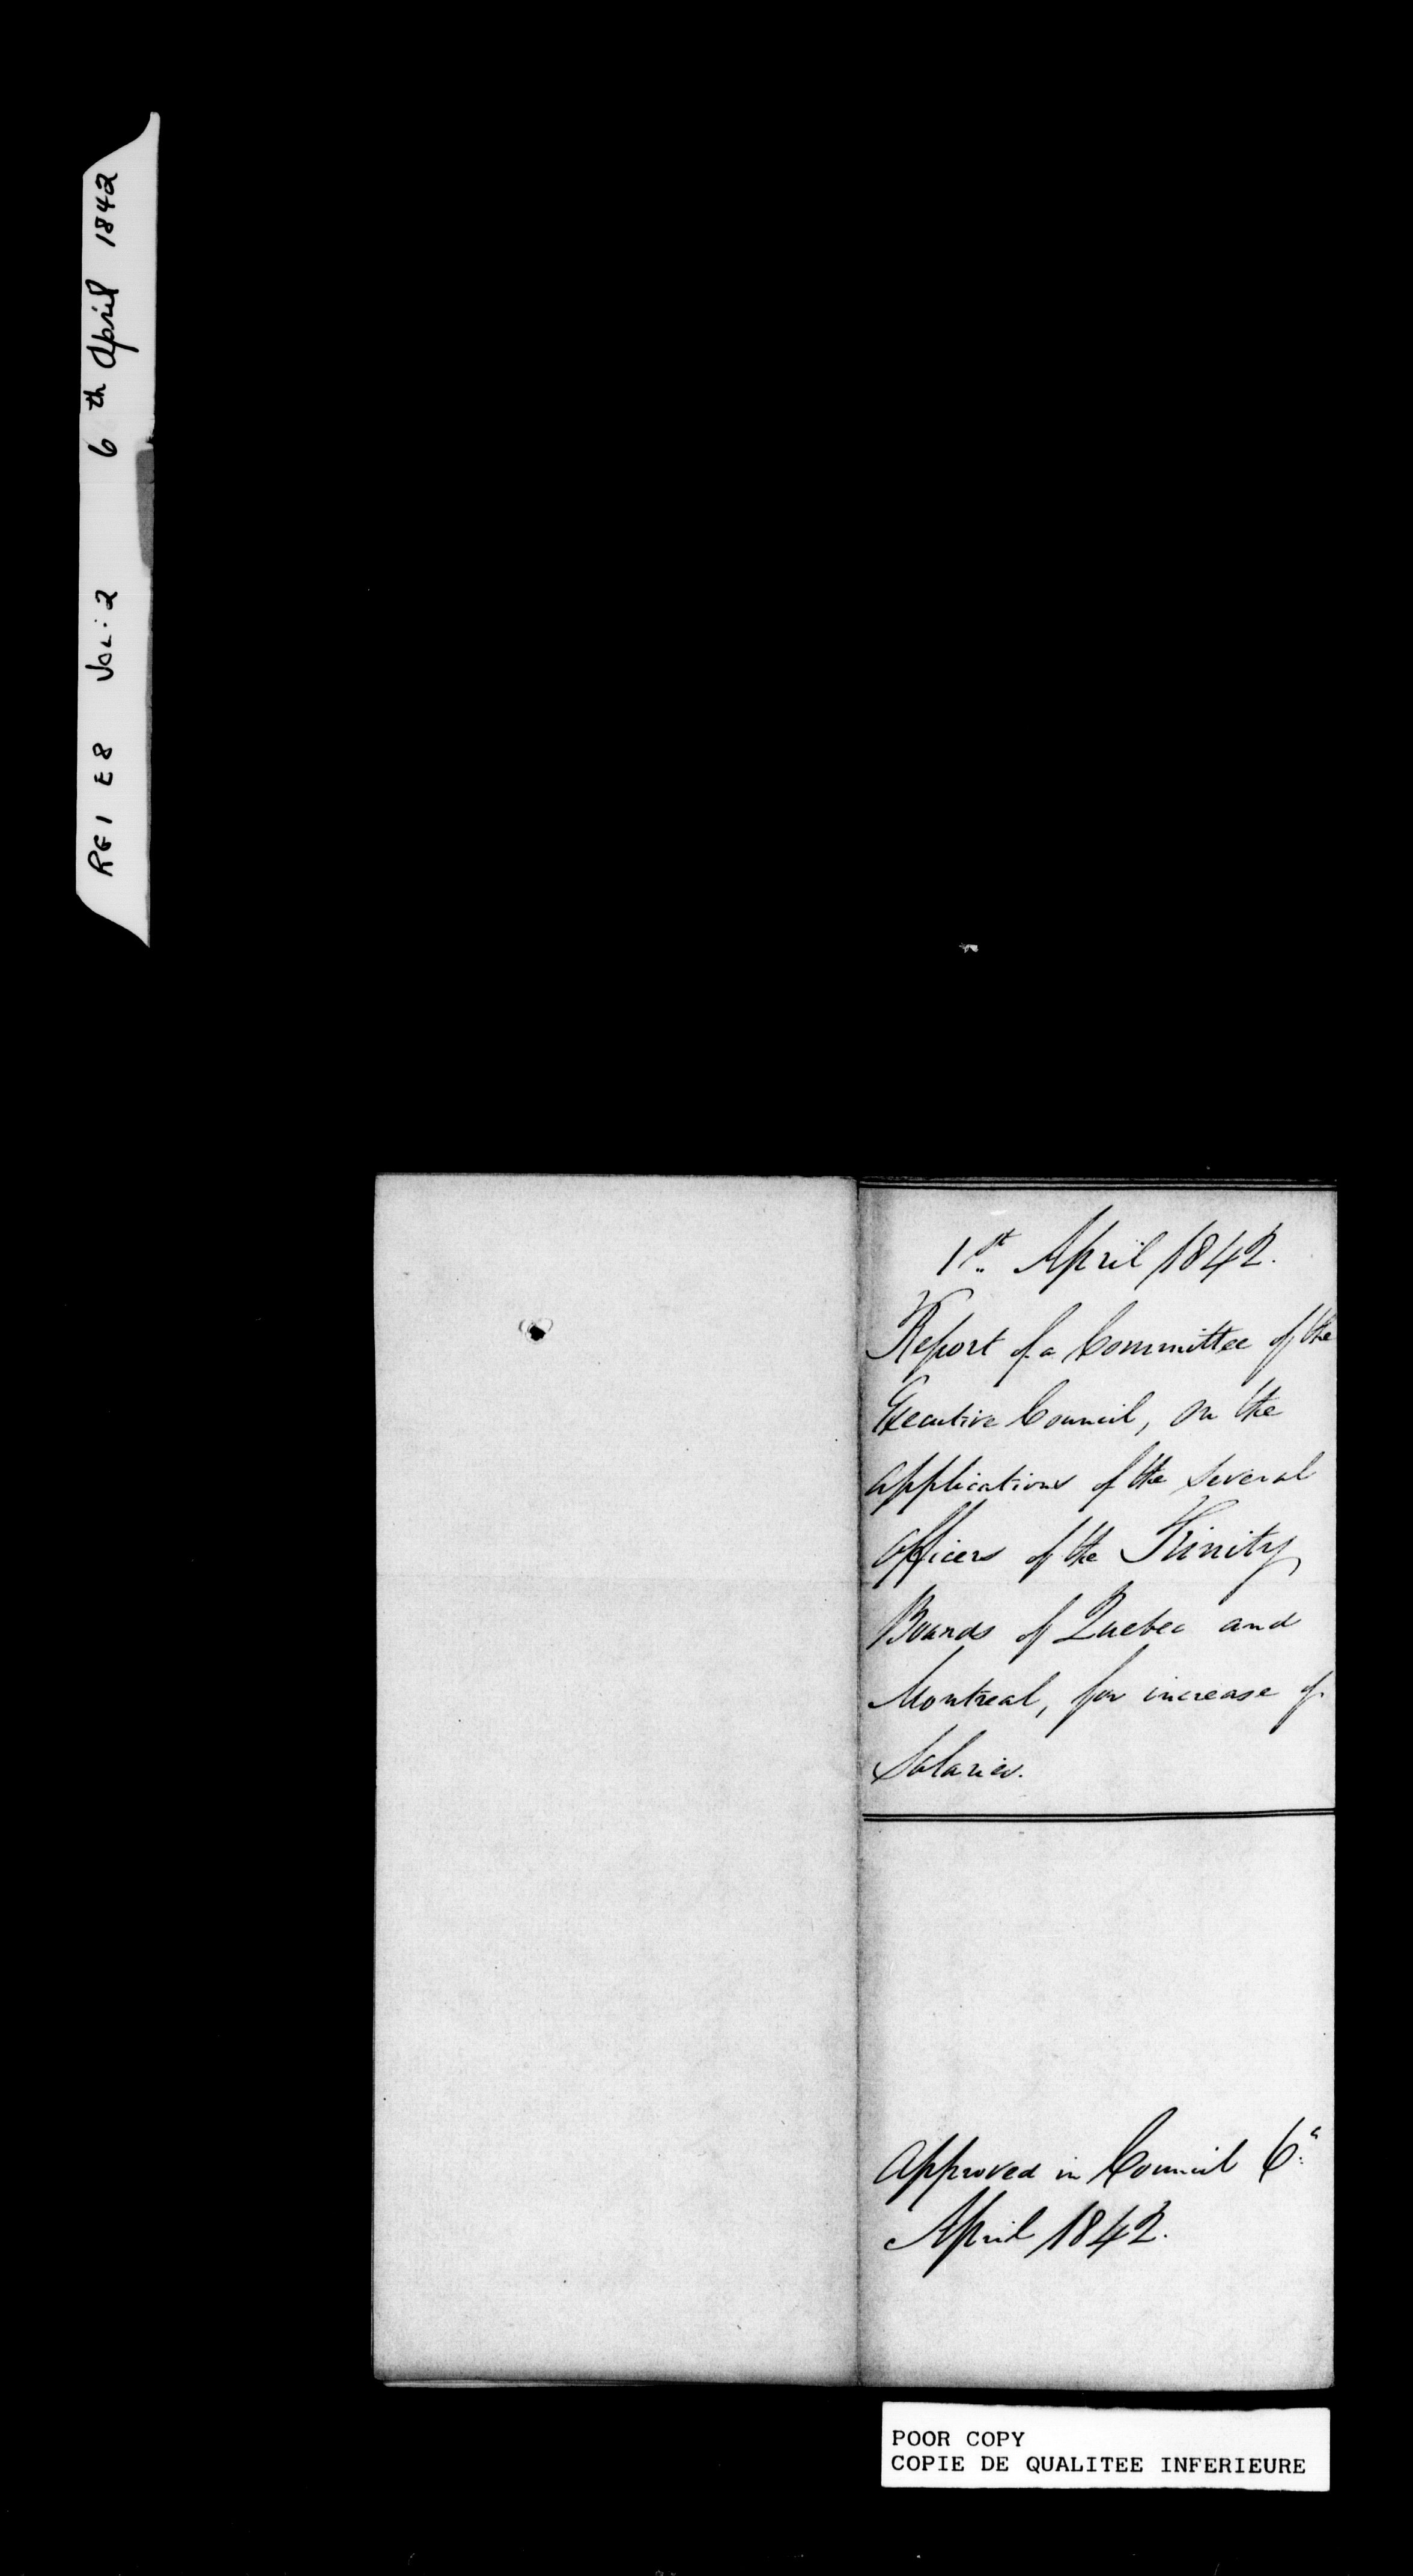 RG1 E8 VOL: 2 6th April 1842
1st April 1842.
Report of a Committee of the
Executive Council, on the
applications of the several
officers of the Trinity
Boards of Quebec and
Montreal, for increase of
Salaries.
Approved in Council 6th
April 1842.
POOR COPY
COPIE DE QUALITEE INFERIEURE